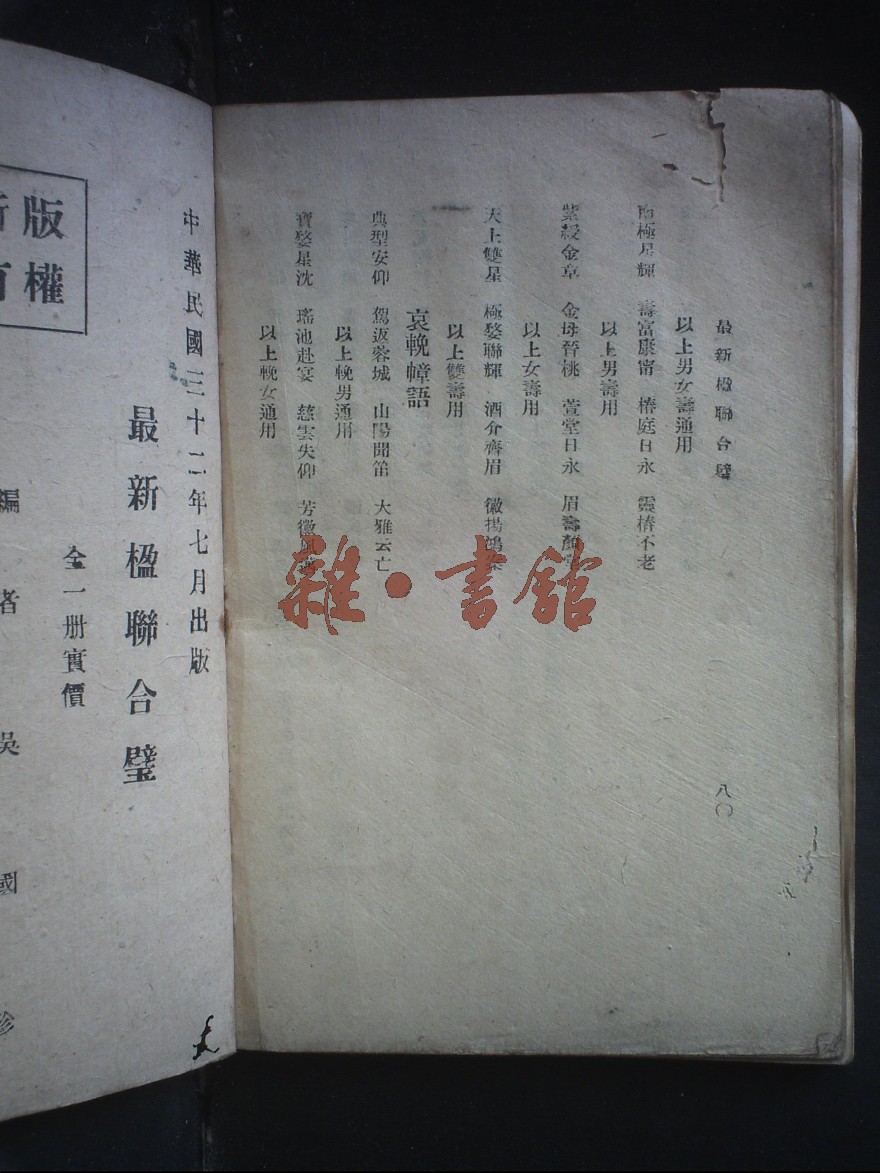 最新楹聯合璧
八〇
以上男女壽通用
南極星輝 壽富康甯 椿庭日永 靈椿不老
以上男壽用
紫綬金章 金母晉桃 萱堂日永 眉壽顏堂
以上女壽用
天上雙星 極婺聯輝 酒介齊眉 徽揚鴻案
以上雙壽用
哀輓幛語
典型安仰 駕返蓉城 山陽聞笛 大雅云亡
以上輓男通用
寶婺星沈 瑤池赴宴 慈雲失仰 芳徽
以上輓女通用
中華民國三十二年七月出版
最新楹聯合璧
全一册實價
版權
所有
編者 吳國珍
雜·書館